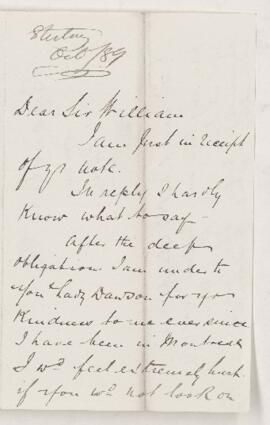 Oct /89
Dear Sir William
I am Just in receipt
of yr note.
In reply I hardly
Know what to say -
After the deep
obligation I am under to
you & Lady Dawson for yr
Kindness to me ever since
I have been in Montreal
I wd feel extremely hurt
if you wd not look on